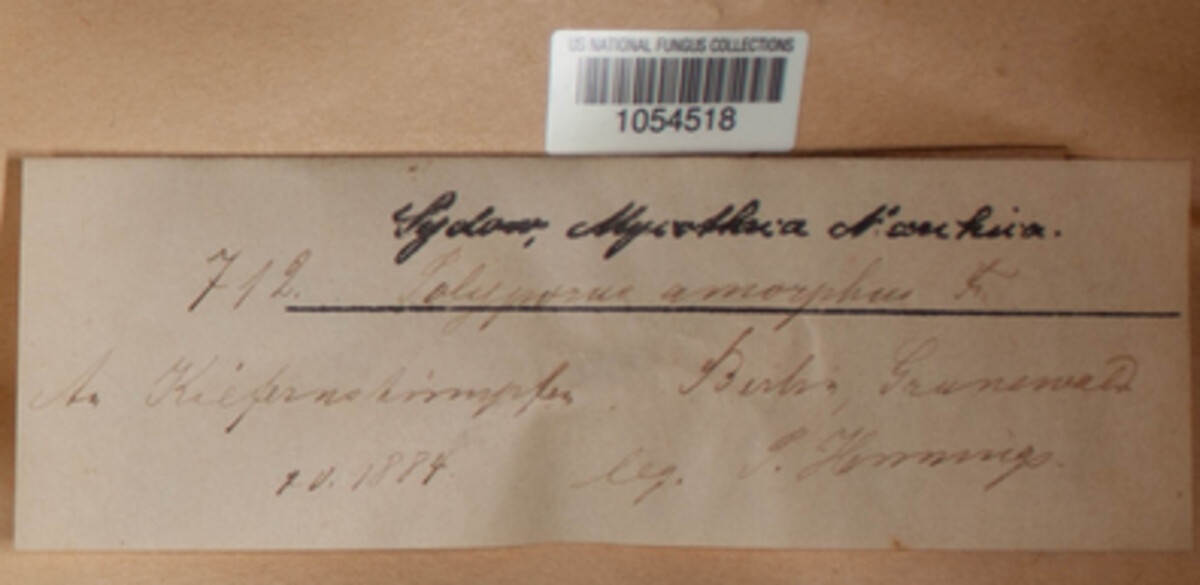 US NATIONAL FUNGUS COLLECTIONS
1054518
Sydow, Mycotheca Marchica.
712. Polyporus amorphus Fr.
An Kiefernstümpfen. Berlin, Grunewald
1884. leg. P. Hennings.